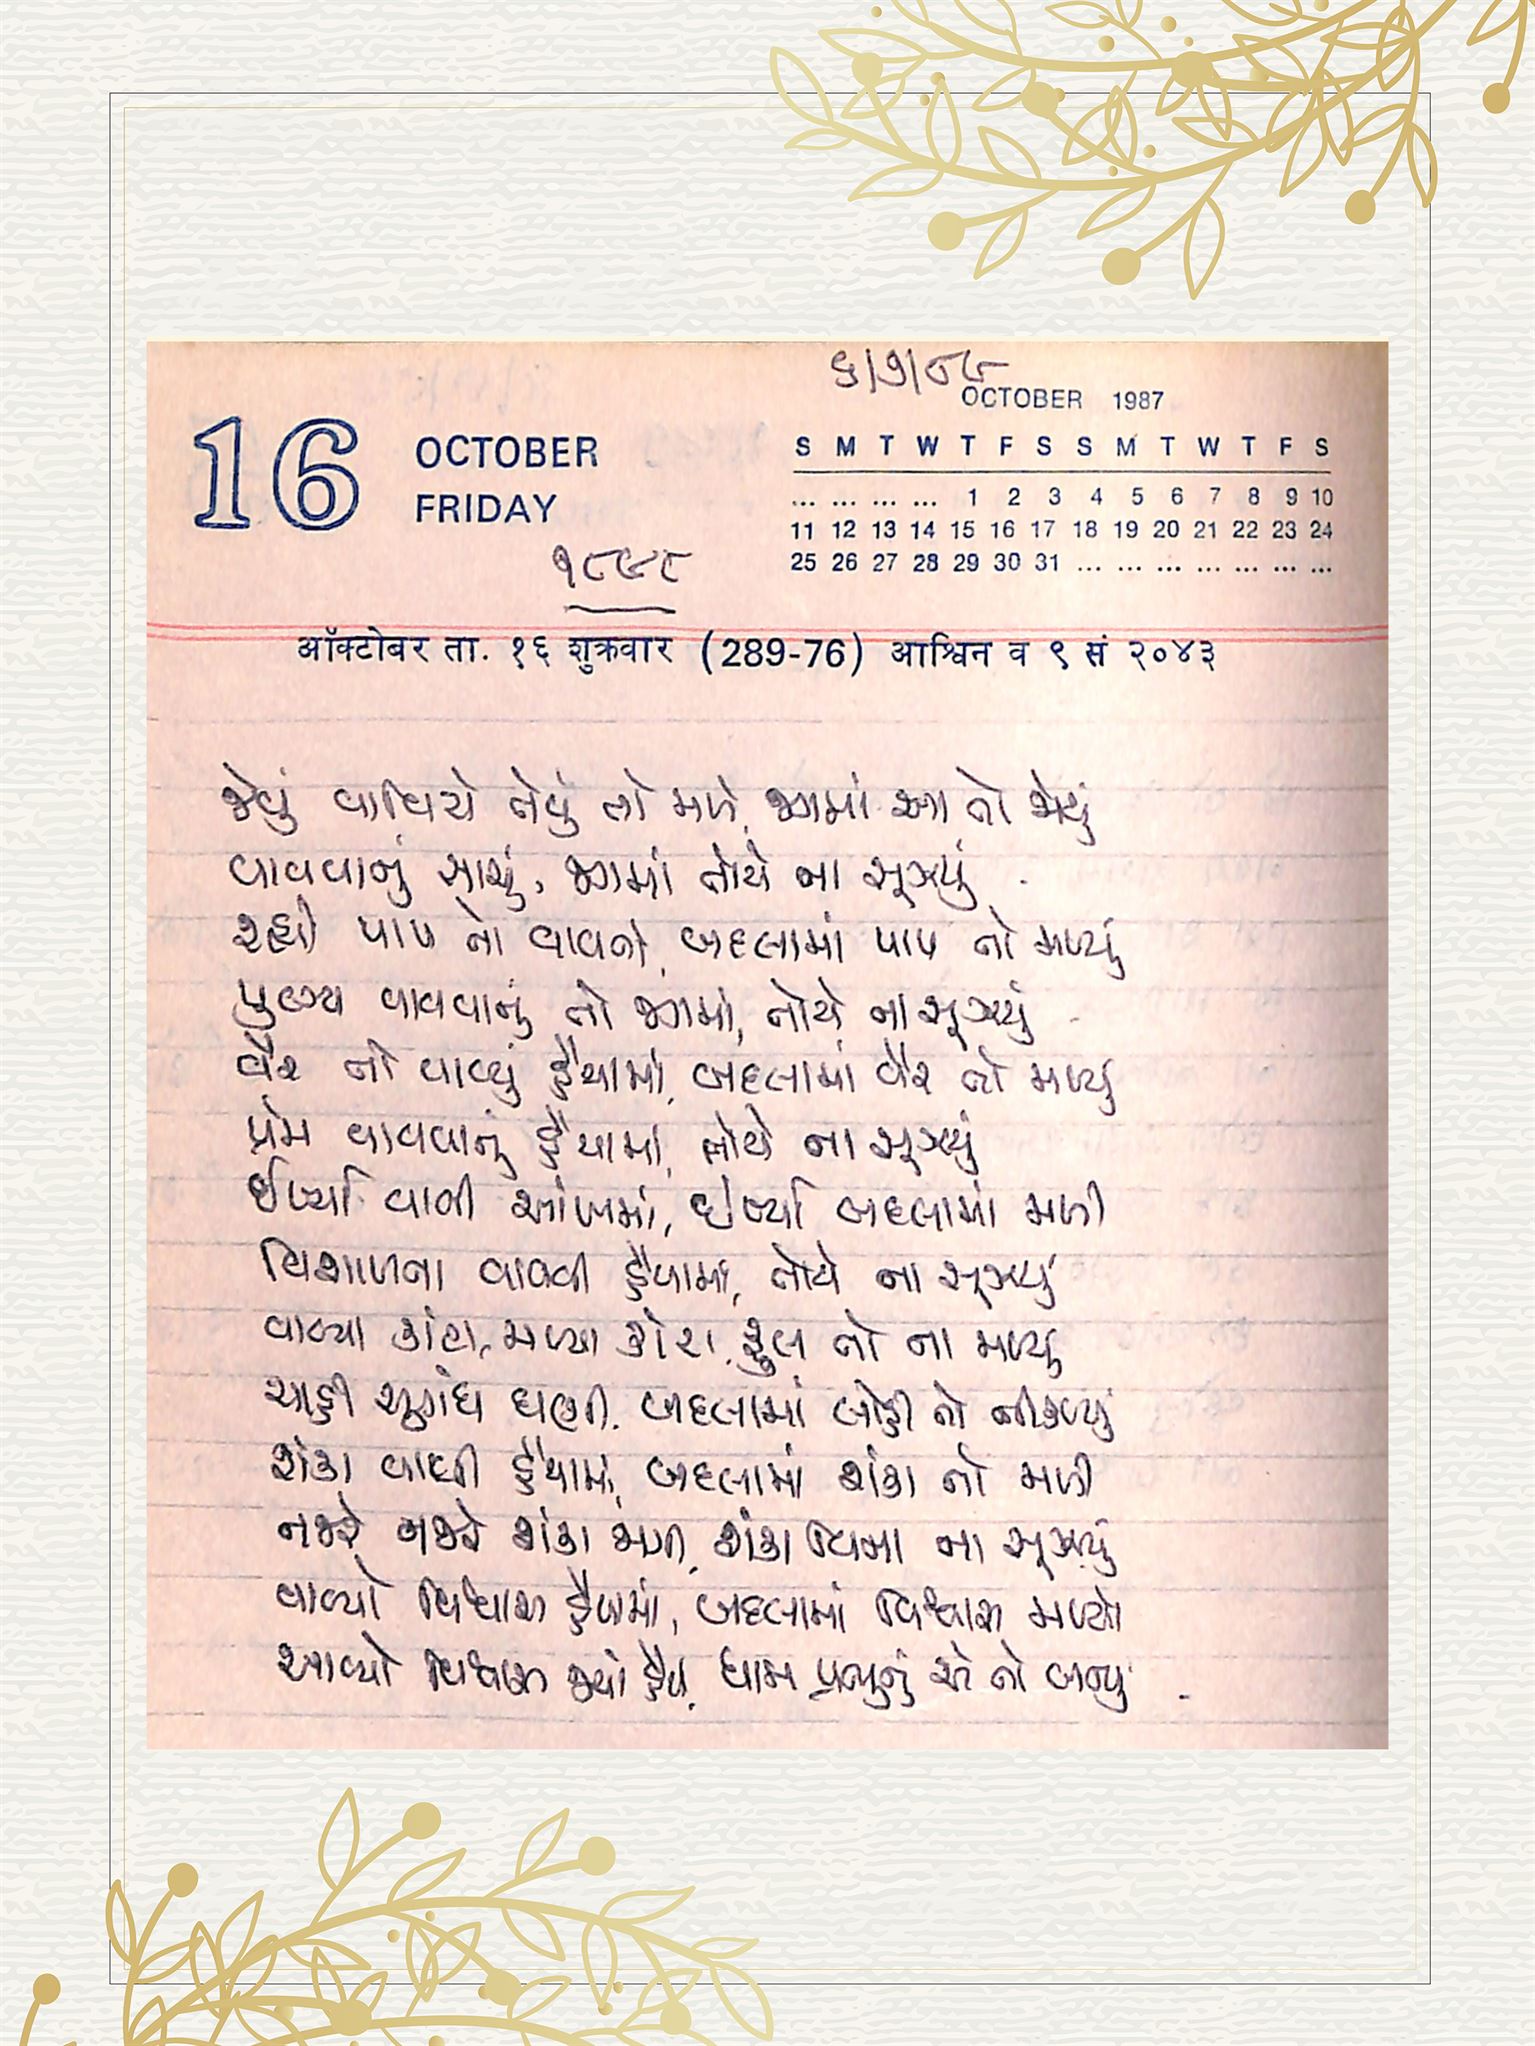 ૬/૭/૮૯
OCTOBER 1987
16 OCTOBER
FRIDAY
S M T W T F S S M T W T F S
... ... ... ... 1 2 3 4 5 6 7 8 9 10
11 12 13 14 15 16 17 18 19 20 21 22 23 24
25 26 27 28 29 30 31 ... ... ... ... ... ... ...
૧૮૯૮
ऑक्टोबर ता. १६ शुक्रवार (289-76) आश्विन व ९ सं २०४३
જેવું વાવિયે તેવું તો મળે, જગમાં આ તો જોયું
વાવવાનું સાચું, જગમાં તોયે ના સૂઝ્યું
રહી પાપ તો વાવતો, બદલામાં પાપ તો મળ્યું
પુણ્ય વાવવાનું તો જગમાં, તોયે ના સૂઝ્યું
વૈર તો વાવ્યું હૈયામાં, બદલામાં વૈર તો મળ્યું
પ્રેમ વાવવાનું હૈયામાં, તોયે ના સૂઝ્યું
ઈર્ષ્યા વાવી આંખમાં, ઈર્ષ્યા બદલામાં મળી
વિશાળતા વાવવી હૈયામાં, તોયે ના સૂઝ્યું
વાવ્યા કાંટા, મળ્યા કાંટા, ફુલ તો ના મળ્યું
ચાહી સુગંધ ઘણી, બદલામાં લોહી તો નીકળ્યું
શંકા વાવી હૈયામાં, બદલામાં શંકા તો મળી
નજરે નજરે શંકા જાગી, શંકા વિના ના સૂઝ્યું
વાવ્યો વિશ્વાસ હૈયામાં, બદલામાં વિશ્વાસ મળ્યો
આવ્યો વિશ્વાસ જ્યાં હૈયે, ધામ પ્રભુનું એ તો બન્યું